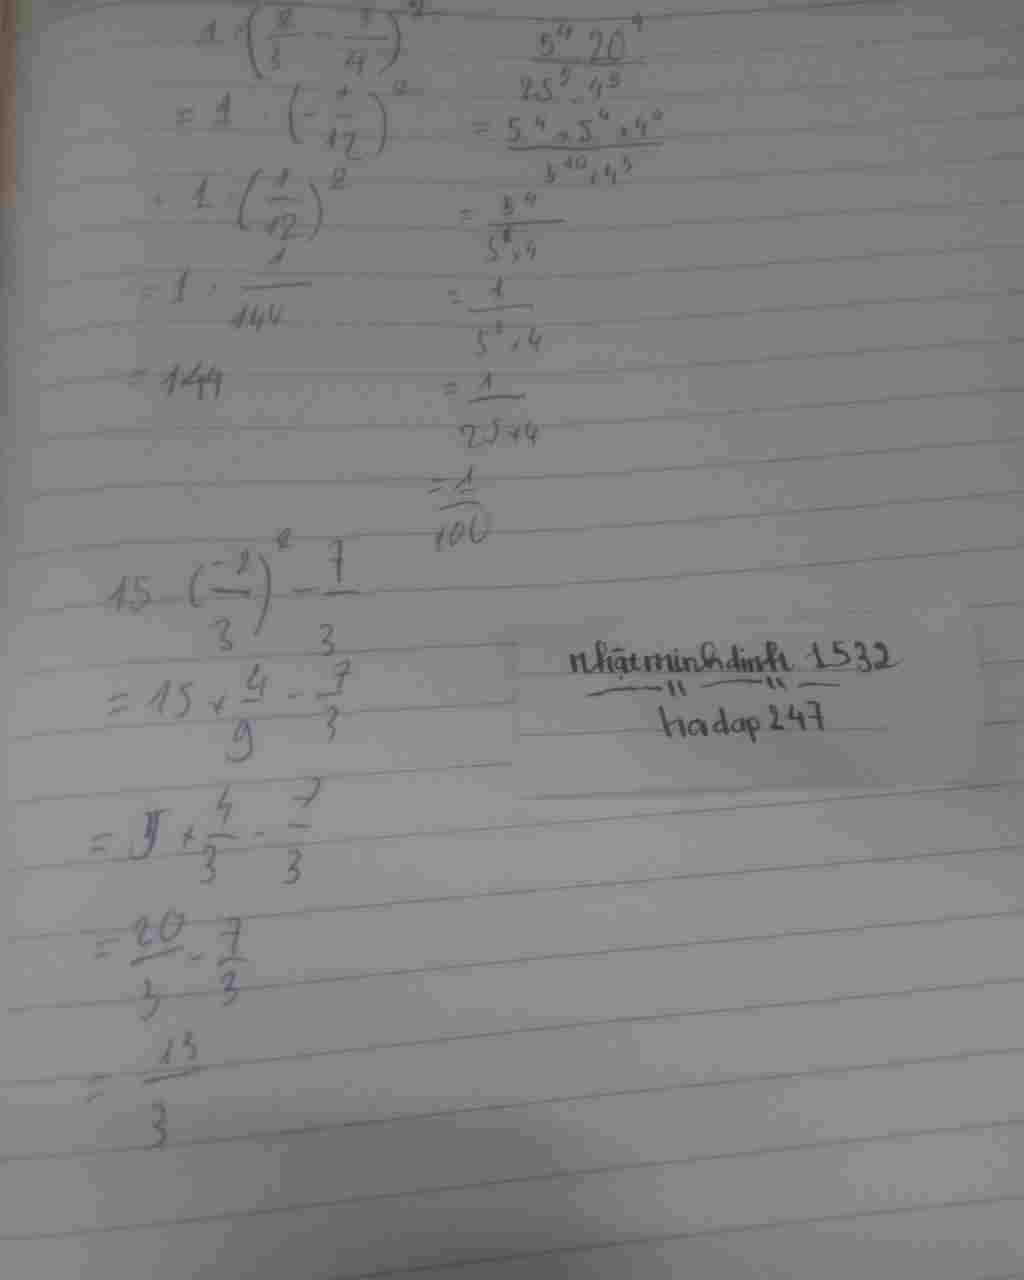 1 : (2/3 - 3/4)^2
= 1 : (-1/12)^2
= 1 : (1/12)^2
= 1 : 1/144
= 144
5^4 . 20^4 / 25^5 . 4^5
= 5^4 . 5^4 . 4^4 / 5^10 . 4^5
= 5^4 / 5^6 . 4
= 1 / 5^2 . 4
= 1 / 25 . 4
= 1/100
15 (-2/3)^2 - 7/3
= 15 . 4/9 - 7/3
= 5 . 4/3 - 7/3
= 20/3 - 7/3
= 13/3
nhậtminhdinh 1532
hoidap247